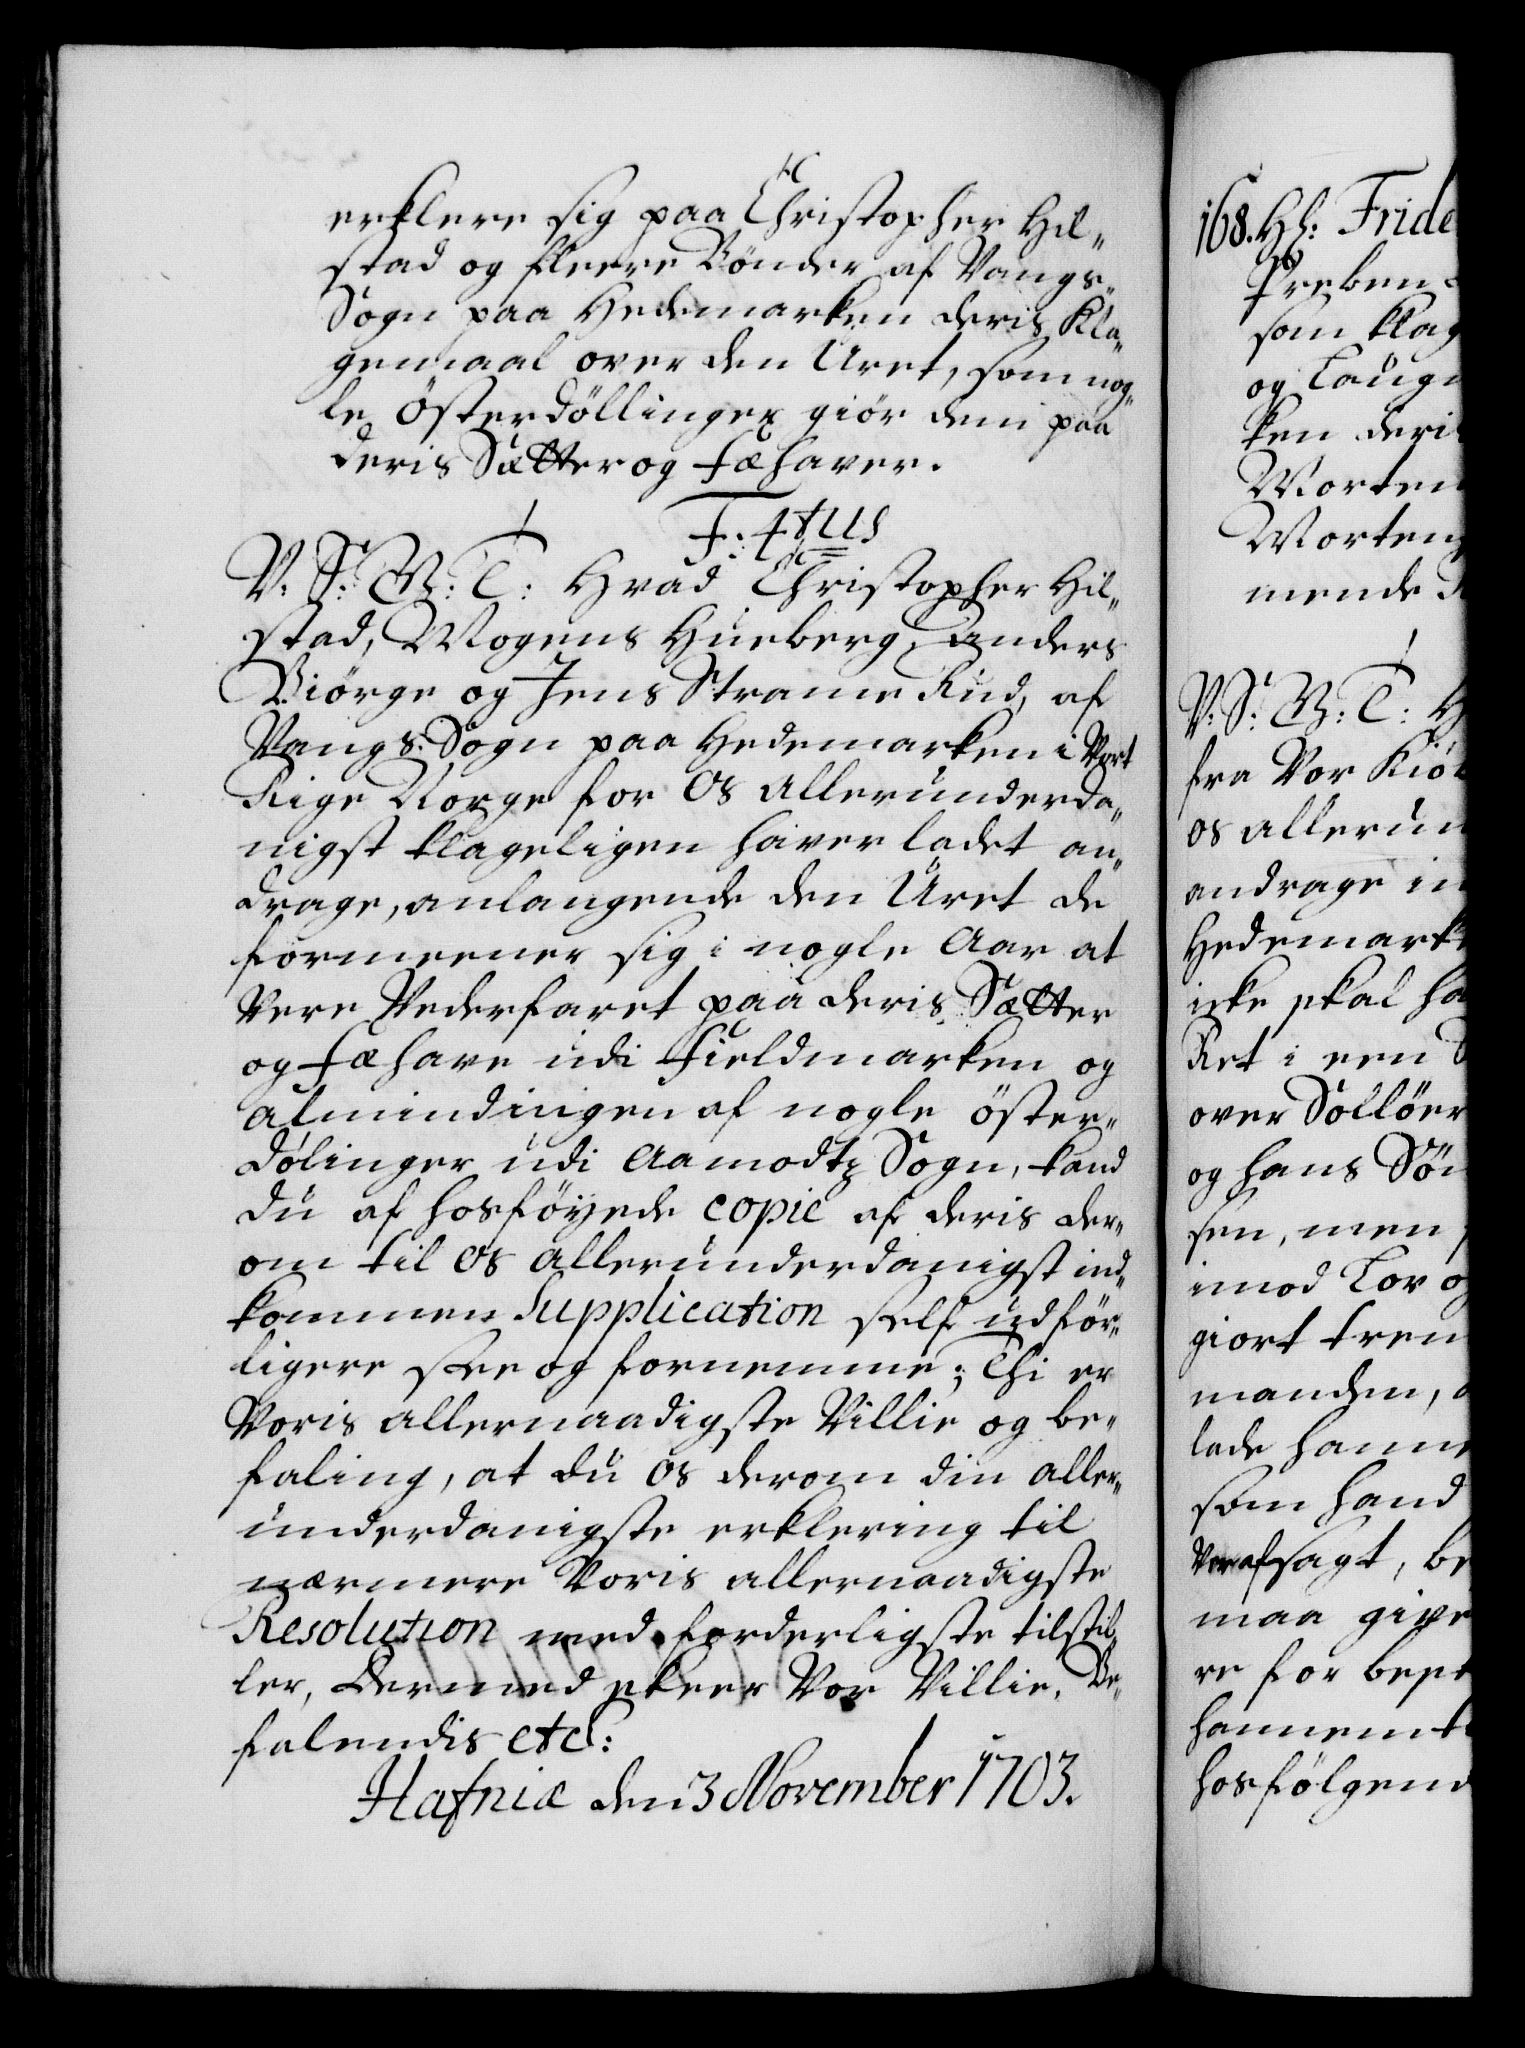 erklere sig paa Christopher Hil„
stad og fleere Bønder af Vangs„
Sogn paa Hedemarken deris Kla„
gemaal over den Uret, som nog„
le Østerdöllinger giör dem paa
deris Sætter og fæhaver.
F: 4tus
V. S: G: T: Hvad Christopher Hil„
stad, Mogens Hueberg, Anders
Biörge og Jens Strame Rud, af
Vangs Sogn paa Hedemarken i Vort
Rige Norge for Os allerunderda„
nigst klageligen haver ladet an„
drage, anlangende den Uret de
formeener sig i nogle Aar at
Vere Vederfaret paa deris Sætter
og fæhave udi fieldmarken og
Almindingen af nogle öster„
dölinger udi Aamodtz Sogn, kand
du af hosföyede copie af deris der„
om til Os allerunderdanigst ind„
kommen Supplication self udför„
ligere see og fornemme; Thi er
Voris allernaadigste Villie og be„
faling, at du Os derom din aller„
underdanigste erklering til
nærmere Voris allernaadigste
Resolution med forderligste tilstil„
ler, Dermed skeer Vor Villie. Be„
falendis etc:
Hafniæ den 3 November 1703.
168. Hl: Fride
Preben
som klag
og Laugm
ken deris
Morten
Morten
mende R
V: S: G: T: H
fra Vor Kiöb
os allerun
andrage in
Hedemark
icke skal ha
Ret i een S
over Sollöer
og hans Sön
sen, men
imod Lov og
giort tren
manden,
lade hanne
som hand
Vor afsagt, be
maa give
re for best
hannem t
hosfølgend